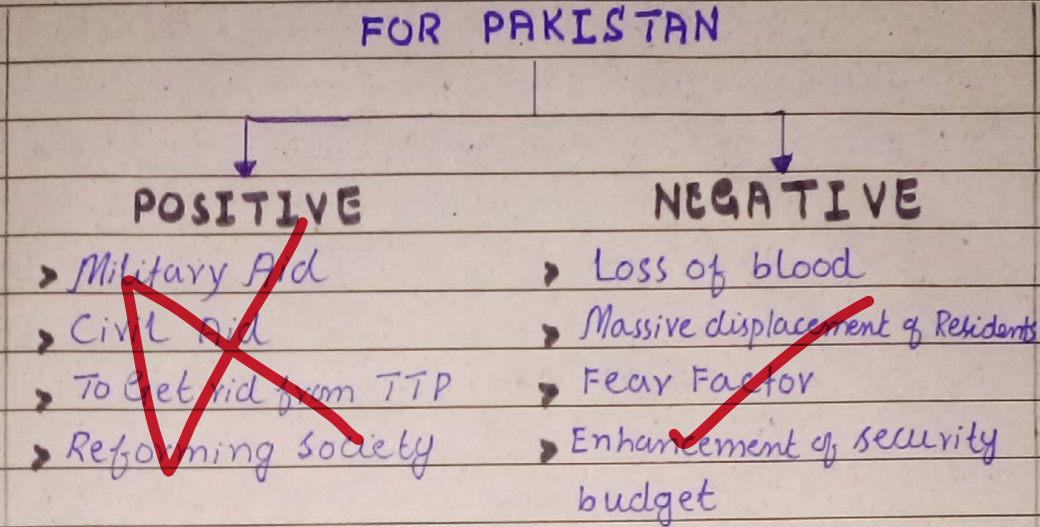 FOR PAKISTAN
POSITIVE
> Military Aid
> Civil Aid
> To Get rid from TTP
> Reforming society
NEGATIVE
> Loss of blood
> Massive displacement of Residents
> Fear Factor
> Enhancement of security
budget